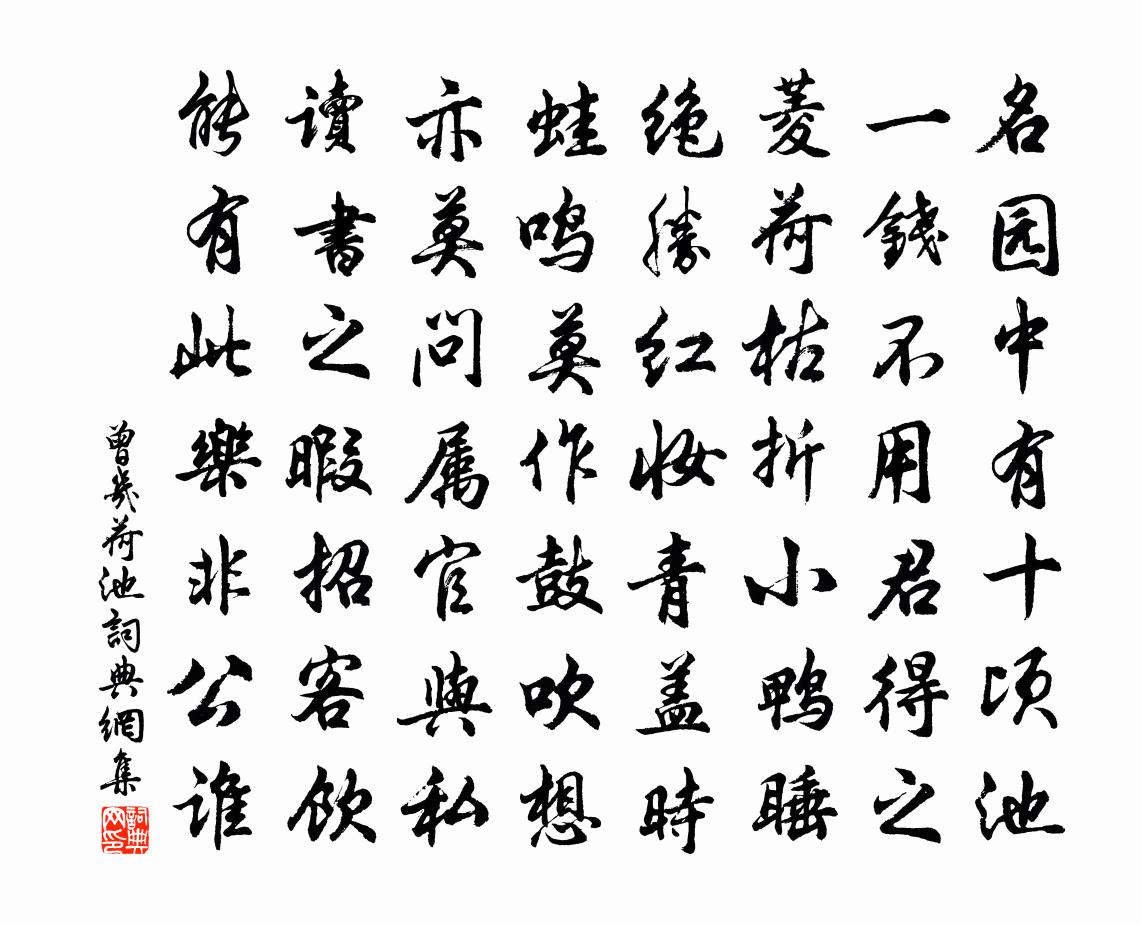 名园中有十顷池
一錢不用君得之
菱荷枯折小鸭睡
绝勝红妆青盖時
蛙鸣莫作鼓吹想
亦莫问属官與私
讀書之暇招客饮
能有此樂非公谁
曾幾荷池詞典網集
詞典网印